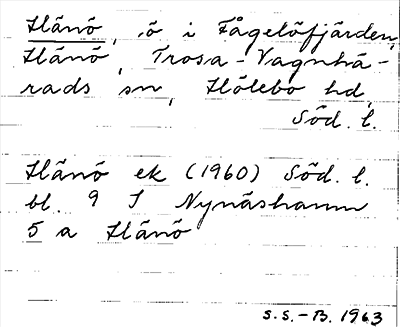 Hånö, ö i Fågelöfjärden,
Hånö, Trosa-Vagnhä-
rads sn, Hölebo hd,
Söd. l.
Hånö ek (1960) Söd. l.
bl. 9 I Nynäshamn
5 a Hånö
S.S.-B. 1963